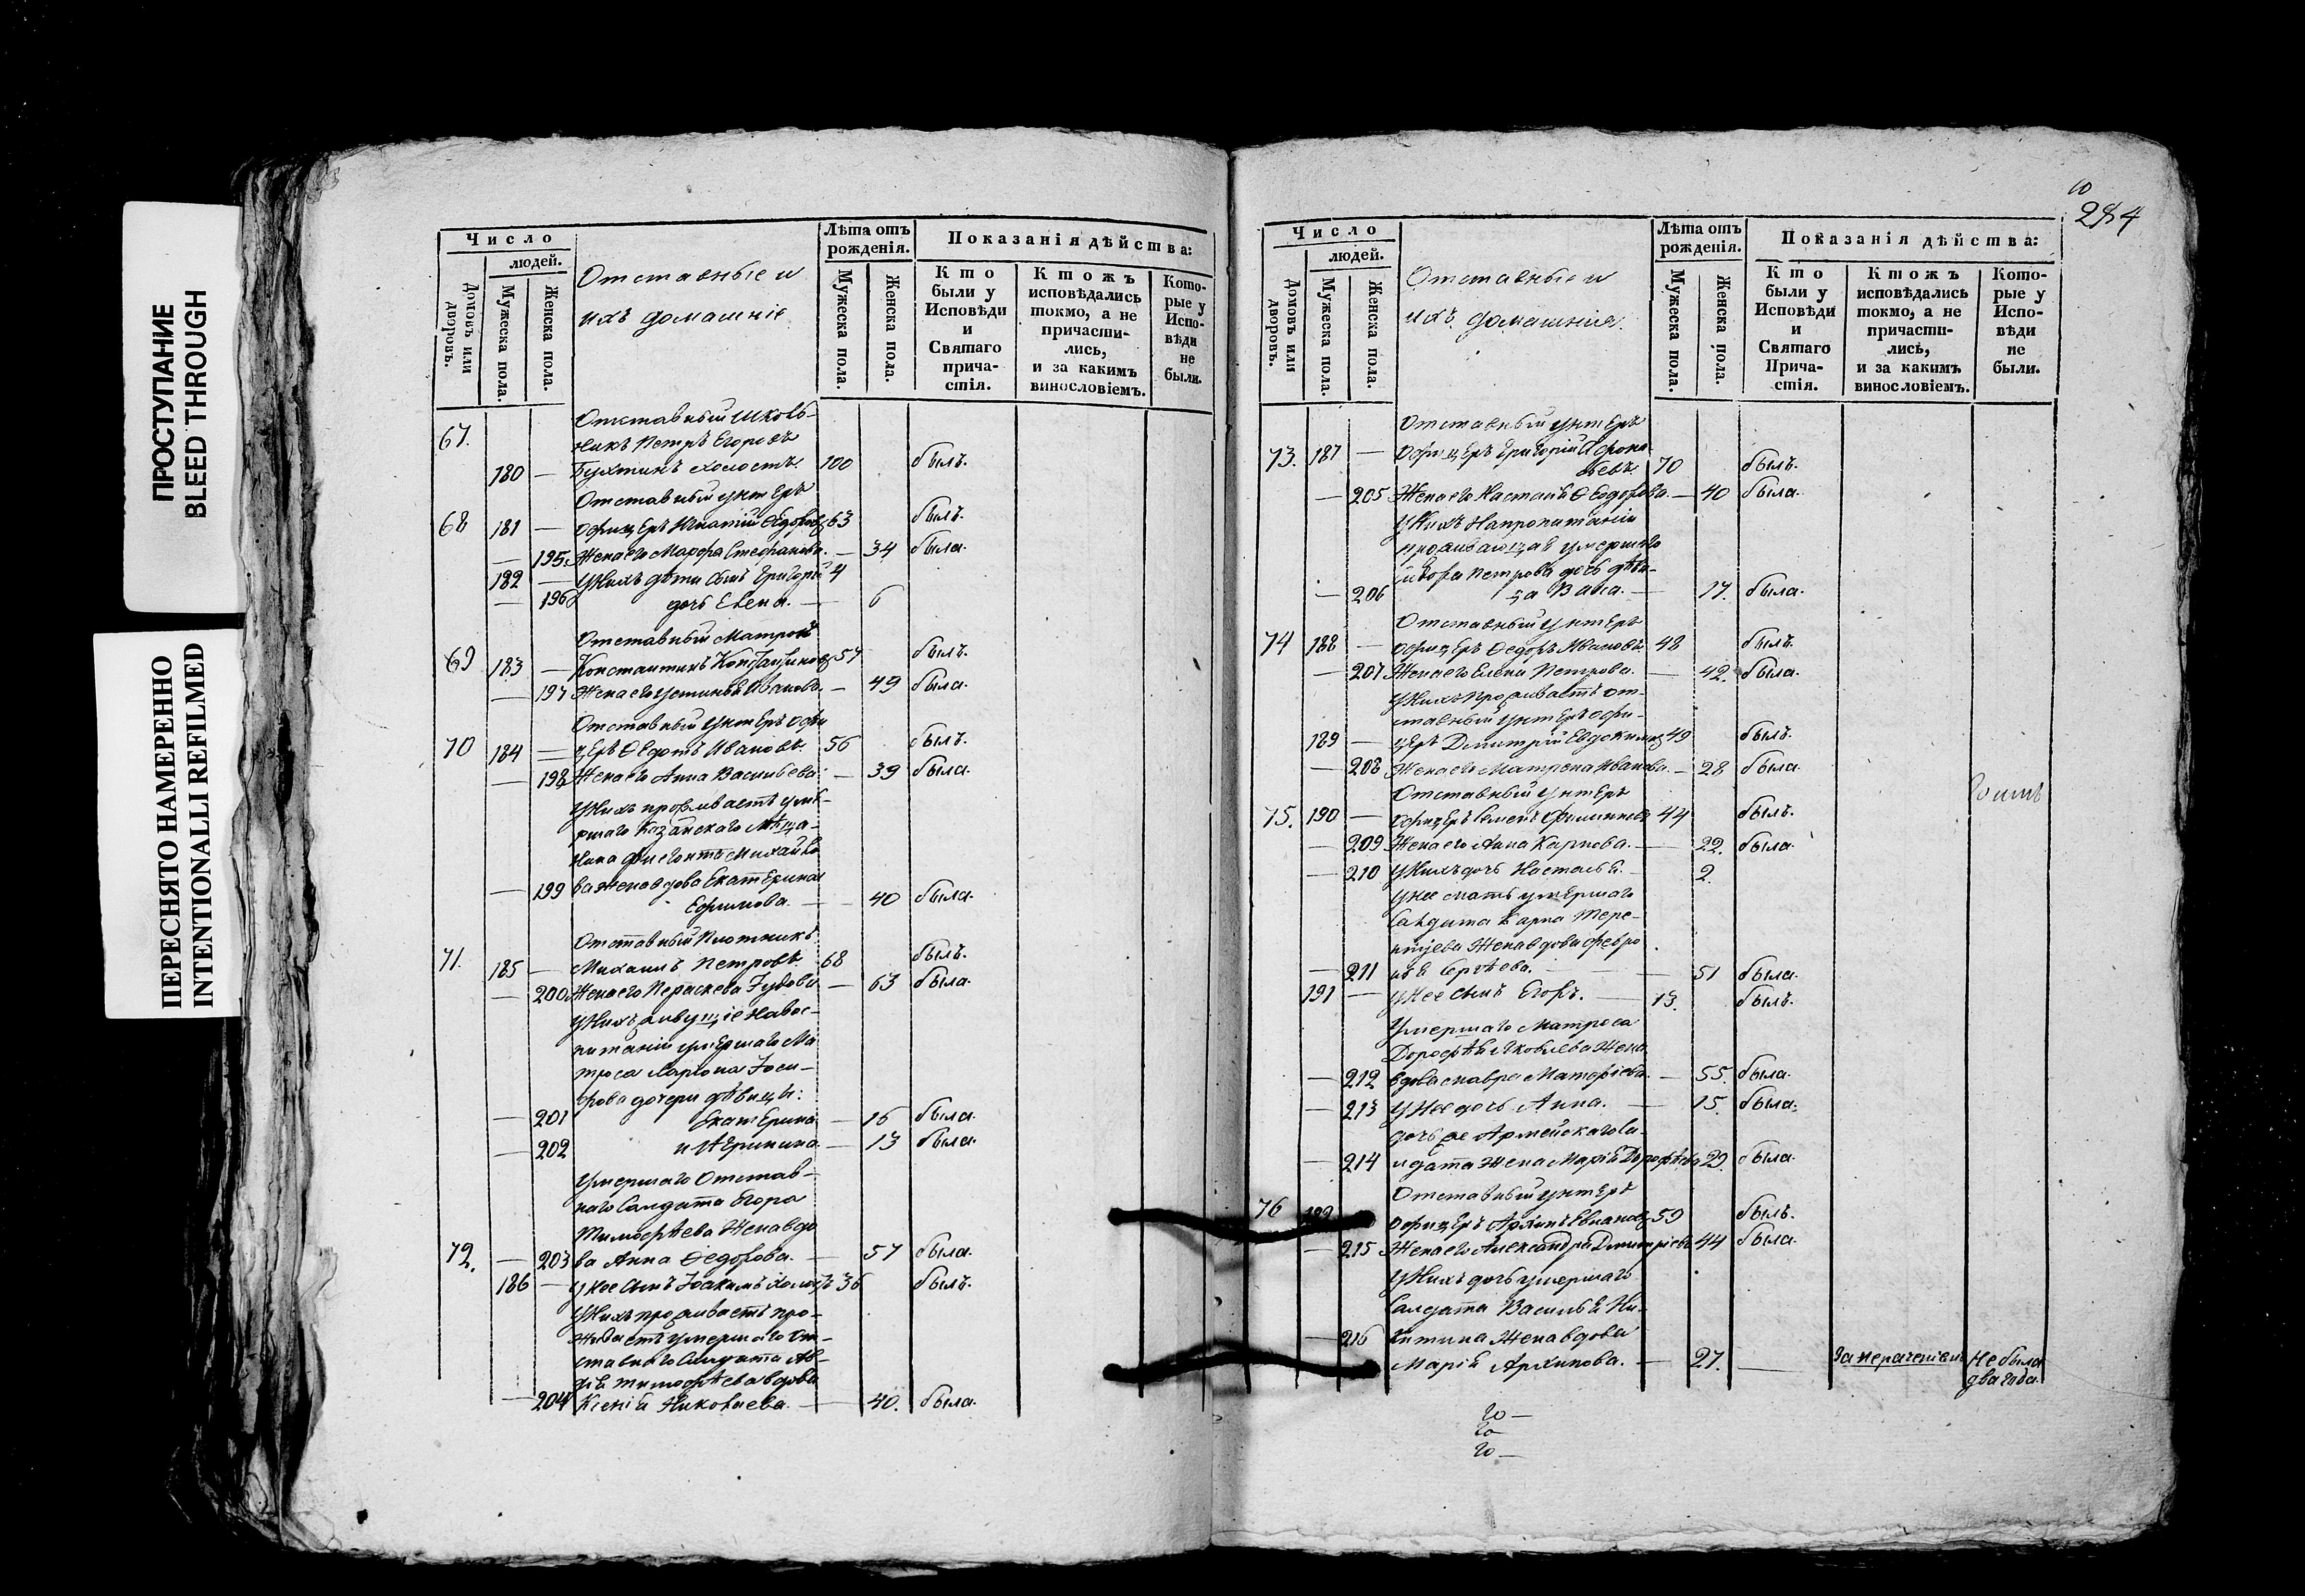 ПРОСТУПАНИЕ
BLEED THROUGH
ПЕРЕСНЯТО НАМЕРЕННО
INTENTIONALLI REFILMED
Число
людей.
Домовъ или дворовъ.
Мужеска пола.
Женска пола.
Отставные и
ихъ домашніе
Лѣта отъ рожденія.
Мужеска пола.
Женска пола.
Показанія дѣйства:
Кто были у Исповѣди и Святаго причастія.
Ктожъ исповѣдались токмо, а не причастились, и за какимъ винословіемъ.
Которые у Исповѣди не были.
Отставный
67. никъ Петръ Егоровъ
180 — холостъ. 100 былъ.
Отставный унтеръ
68 181 — офицеръ Игнатій Ѳедоровъ 63 былъ.
— 195. Жена его Марфа Стефанова. — 34 была.
182 — У нихъ дѣти сынъ Григорій 4
— 196 дочь Елена. — 6
Отставный Матрозъ
69 183 — Константинъ 57 былъ.
— 197 Жена его Устинья Иванова. — 49 была.
Отставный унтеръ офи
70 184 — церъ Ѳедотъ Ивановъ. 56 былъ.
— 198 Жена его Анна Васильева. — 39 была.
У нихъ проживаетъ уме-
ршаго Казанскаго Мѣща-
нина Михайло
— 199 ва жена вдова Екатерина
Ефимова. — 40 была.
Отставный Плотникъ
71. 185 — Михаилъ Петровъ. 68 былъ.
— 200 Жена его Параскева — 63 была.
У нихъ живущіе на вос-
питаніи умершаго Ма
троса Лариона
дочери дѣвицы:
— 201 Екатерина — 16 была.
— 202 и — 13 была.
Умершаго Отстав-
наго Салдата Егора
Тимофѣева Жена вдо
72. — 203 ва Анна Ѳедорова. — 57 была.
186 — У нее сынъ Іоакимъ холостъ 36 былъ.
У нихъ проживаетъ про-
живаетъ умершаго от-
ставнаго Салдата
Тимофѣева вдова
— 204 Ксенія Николаева. — 40. была.
10
284
Число
людей.
Домовъ или дворовъ.
Мужеска пола.
Женска пола.
Отставные и
ихъ домашнія.
Лѣта отъ рожденія.
Мужеска пола.
Женска пола.
Показанія дѣйства:
Кто были у Исповѣди и Святаго Причастія.
Ктожъ исповѣдались токмо, а не причастились, и за какимъ винословіемъ.
Которые у Исповѣди не были.
Отставный унтеръ
73. 187 — офицеръ Григорій Афона-
сьевъ. 70 былъ.
— 205 Жена его Настасья Ѳедорова. — 40 была.
У нихъ на пропитаніи
проживающая умершаго
Петрова дочь дѣви-
— 206 ца Васса. — 17. была.
Отставный Унтеръ
74 188 — офицеръ Ѳедоръ Ивановъ. 48 былъ.
— 207 Жена его Елена Петрова. — 42. была.
У нихъ проживаетъ от-
ставный унтеръ офи-
189 — церъ Дмитрій Евдокимовъ 49 былъ.
— 208 Жена его Матрена Иванова. — 28 была.
Отставный Унтеръ
75. 190 — офицеръ Семенъ Филипповъ 44 былъ.
— 209 Жена его Анна Карпова. — 22. была.
— 210 У нихъ дочь Настасья. — 2.
У нее мать умершаго
Салдата Карпа Тере-
нтьева Жена вдова Февро
— 211 нья Сергѣева. — 51 была.
191 — У нее сынъ Егоръ. — 13. былъ.
Умершаго Матроса
Дорофѣя Яковлева Жена
— 212 вдова Мавра — 55. была.
— 213 У нее дочь Анна. — 15. была.
дочь же Армейскаго Са-
— 214 лдата Жена Марія Дорофѣева 29. была.
Отставный унтеръ
76 192 офицеръ Архипъ 59 былъ.
— 215 Жена его Александра Дмитріева 44 была.
У нихъ дочь умершаго
Салдата Василья Ни-
— 216 китина Жена вдова
Марія Архипова. — 27. — За нераченіемъ Не была
два года.
20 —
20
20 —